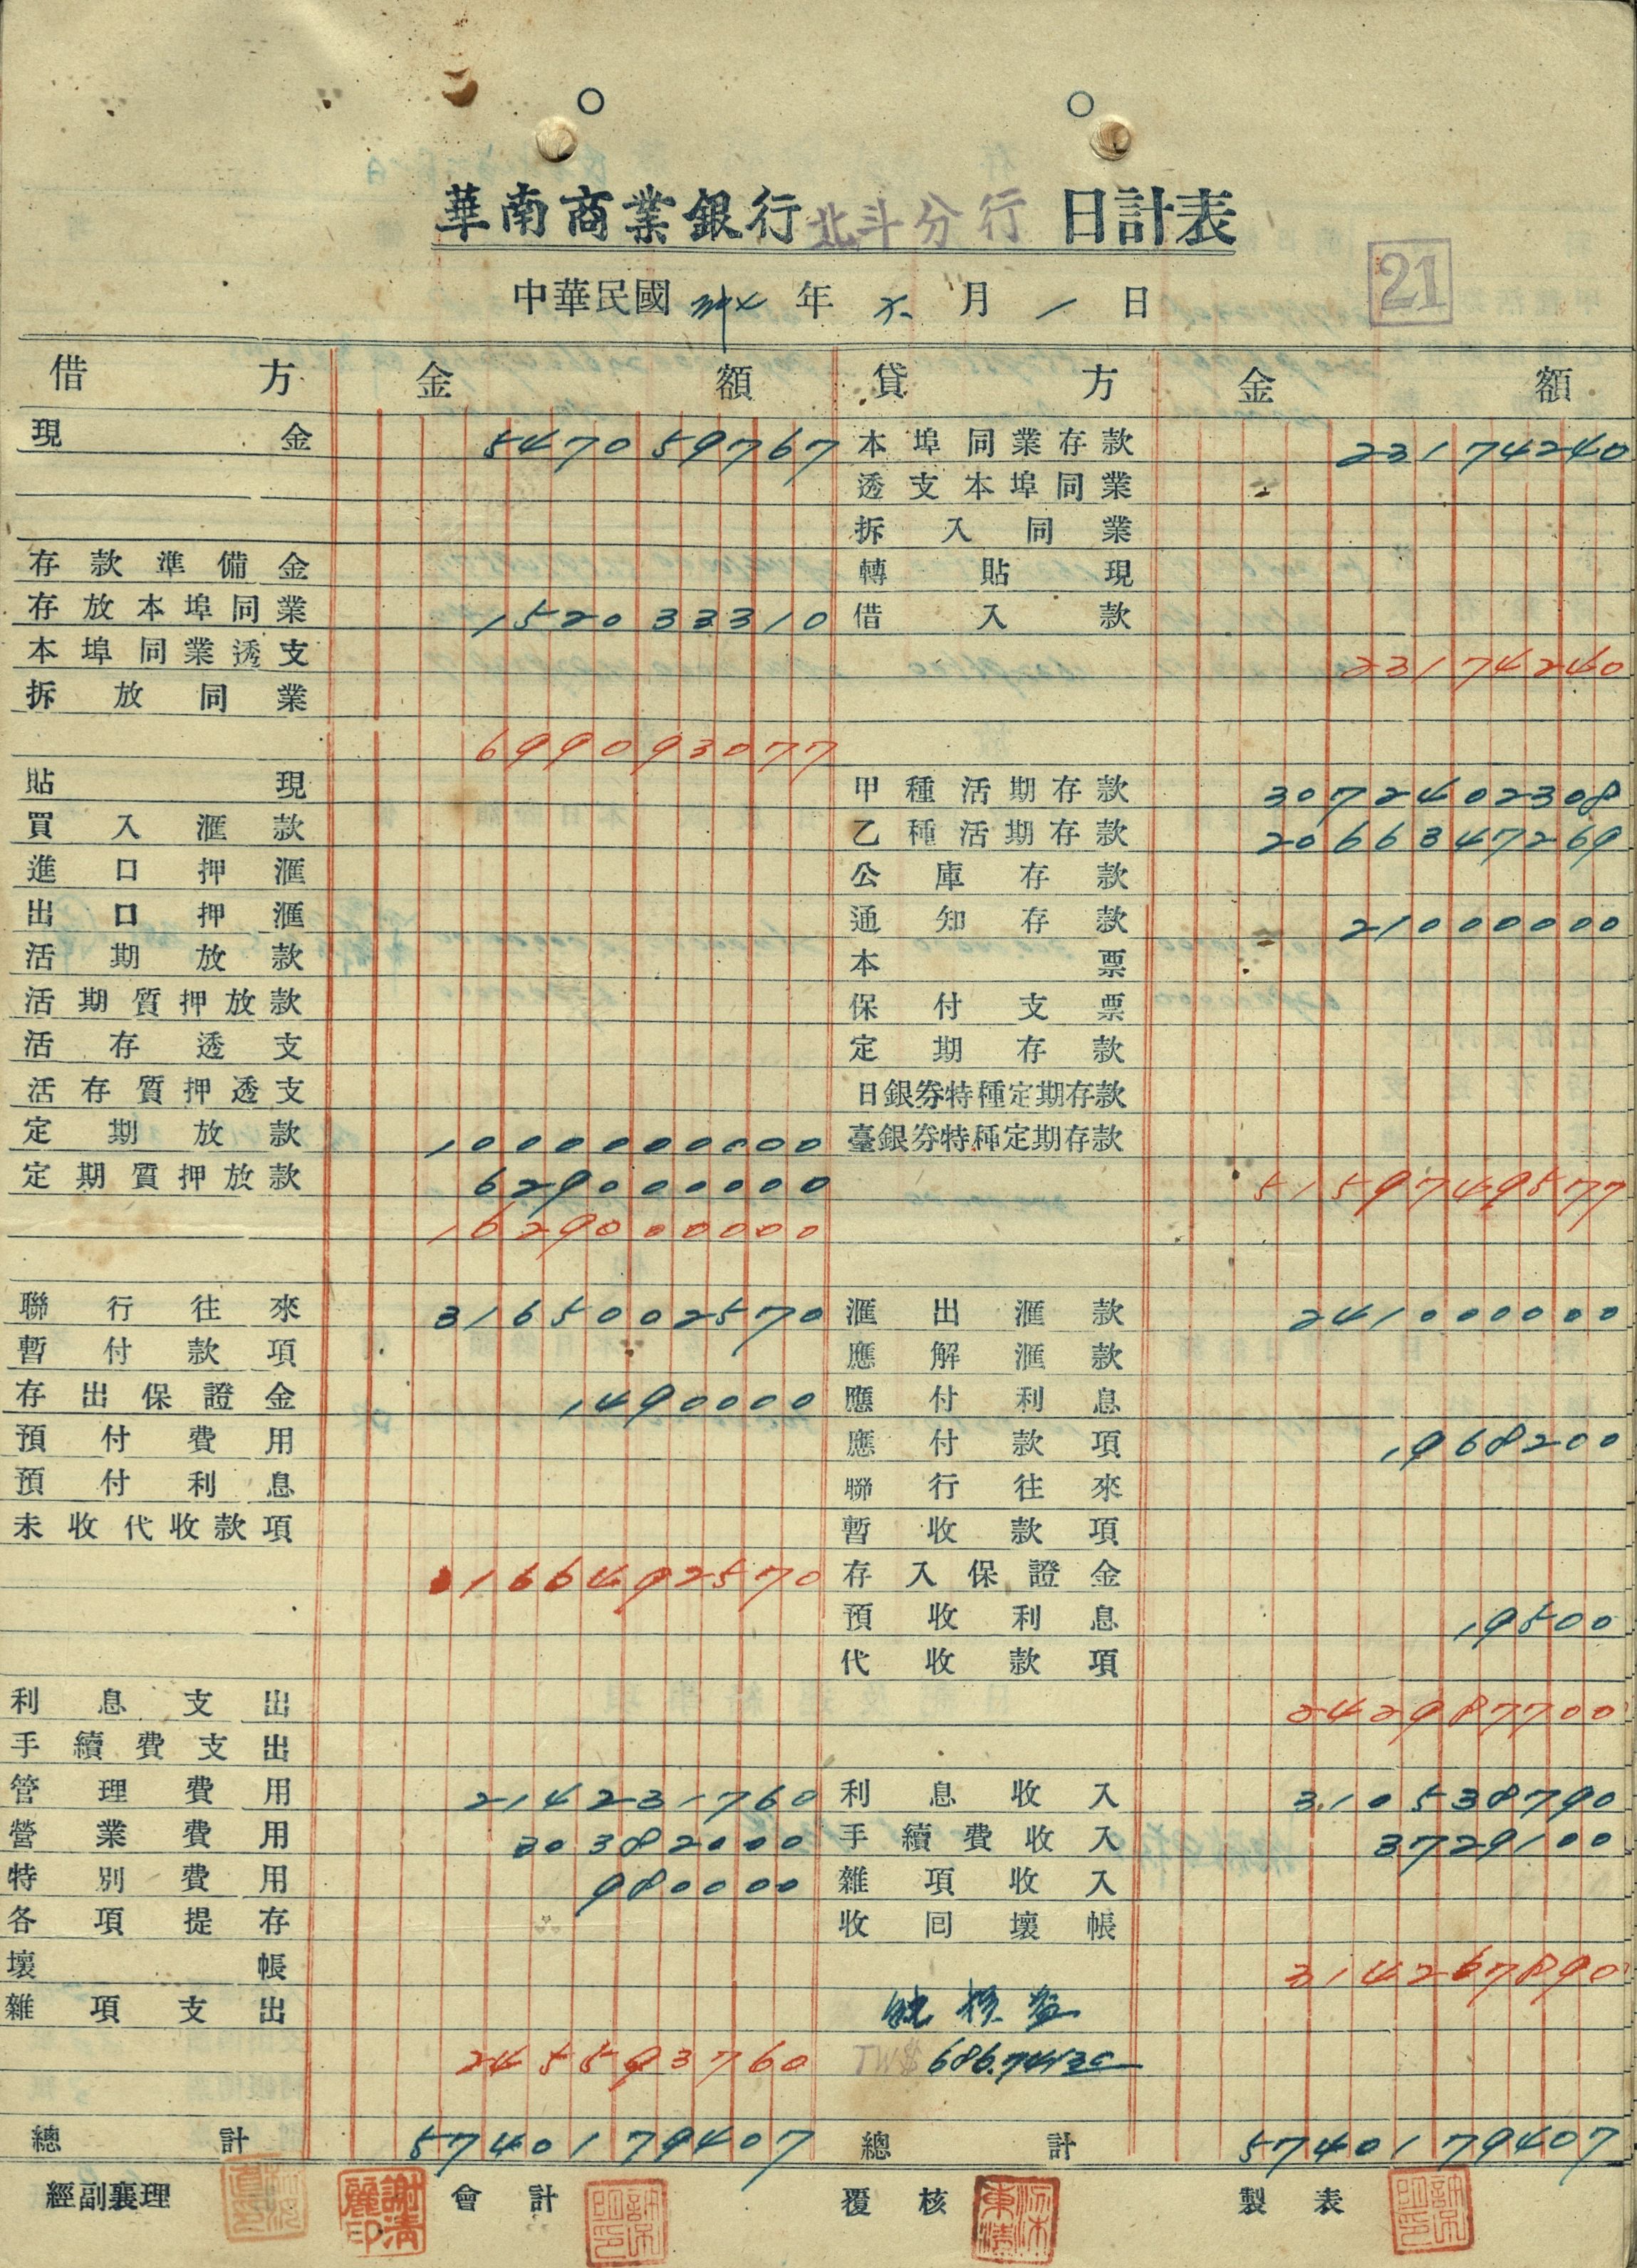 華南商業銀行 北斗分行 日計表
21
中華民國 卅〤 年 月 1 日
借方 金額 貸方 金額
現金 547059767 本埠同業存款 23174240
透支本埠同業
拆入同業
存款準備金 轉貼現
存放本埠同業 152033310 借入款
本埠同業透支 23174240
拆放同業
699093077
貼現 甲種活期存款 3072402308
買入滙款 乙種活期存款 2066347269
進口押滙 公庫存款
出口押滙 通知存款 21000000
活期放款 本票
活期質押放款 保付支票
活存透支 定期存款
活存質押透支 日銀券特種定期存款
定期放款 1000000000 臺銀券特種定期存款
定期質押放款 629000000 5159749577
1629000000
聯行往來 3165002570 滙出滙款 241000000
暫付款項 應解滙款
存出保證金 1490000 應付利息
預付費用 應付款項 1968200
預付利息 聯行往來
未收代收款項 暫收款項
3166492570 存入保證金
預收利息 19500
代收款項
利息支出 242987700
手續費支出
管理費用 214231760 利息收入 310538790
營業費用 30382000 手續費收入 3729100
特別費用 980000 雜項收入
各項提存 收回壞帳
壞帳 314267890
雜項支出 純損益
245593760 686.741 30
總計 5740179407 總計 5740179407
經副襄理 謝清麗印 會計 覆核 製表